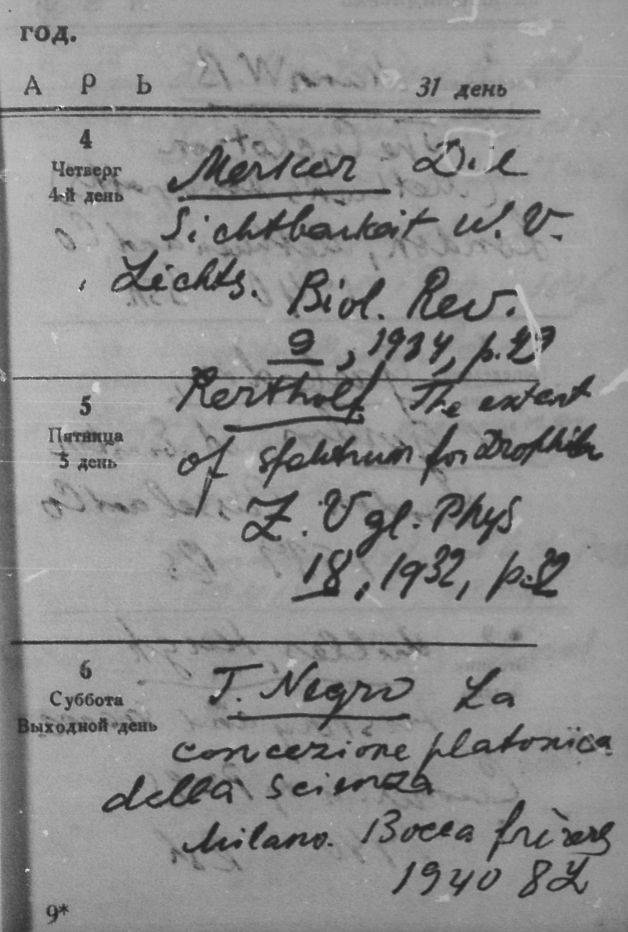 ГОД.
АРЬ 31 день
4
Четверг
4-й день
Merker Die
Sichtbarkeit W. V.
Lichts. Biol. Rev.
9, 1934, p.
5
Пятница
5 день
Bertholf The extent
of spektrum for
Z. Vgl. Phys
18, 1932, p.
6
Суббота
Выходной день
T. Negro La
concezione platonica
della scienza
Milano. Bocca frères
1940 8 L
9*